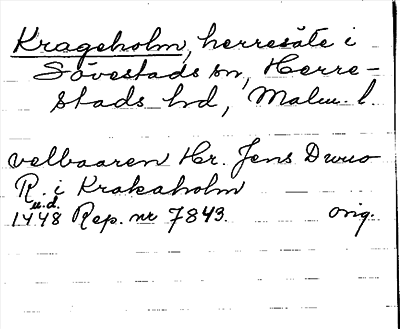 Krageholm, herresäte i
Sövestads sn, Herre-
stads hd, Malm. l.
velbaaren Hr. Jens Duuo
R. i Krakaholm
u.d.
1448 Rep. nr 7843. orig.